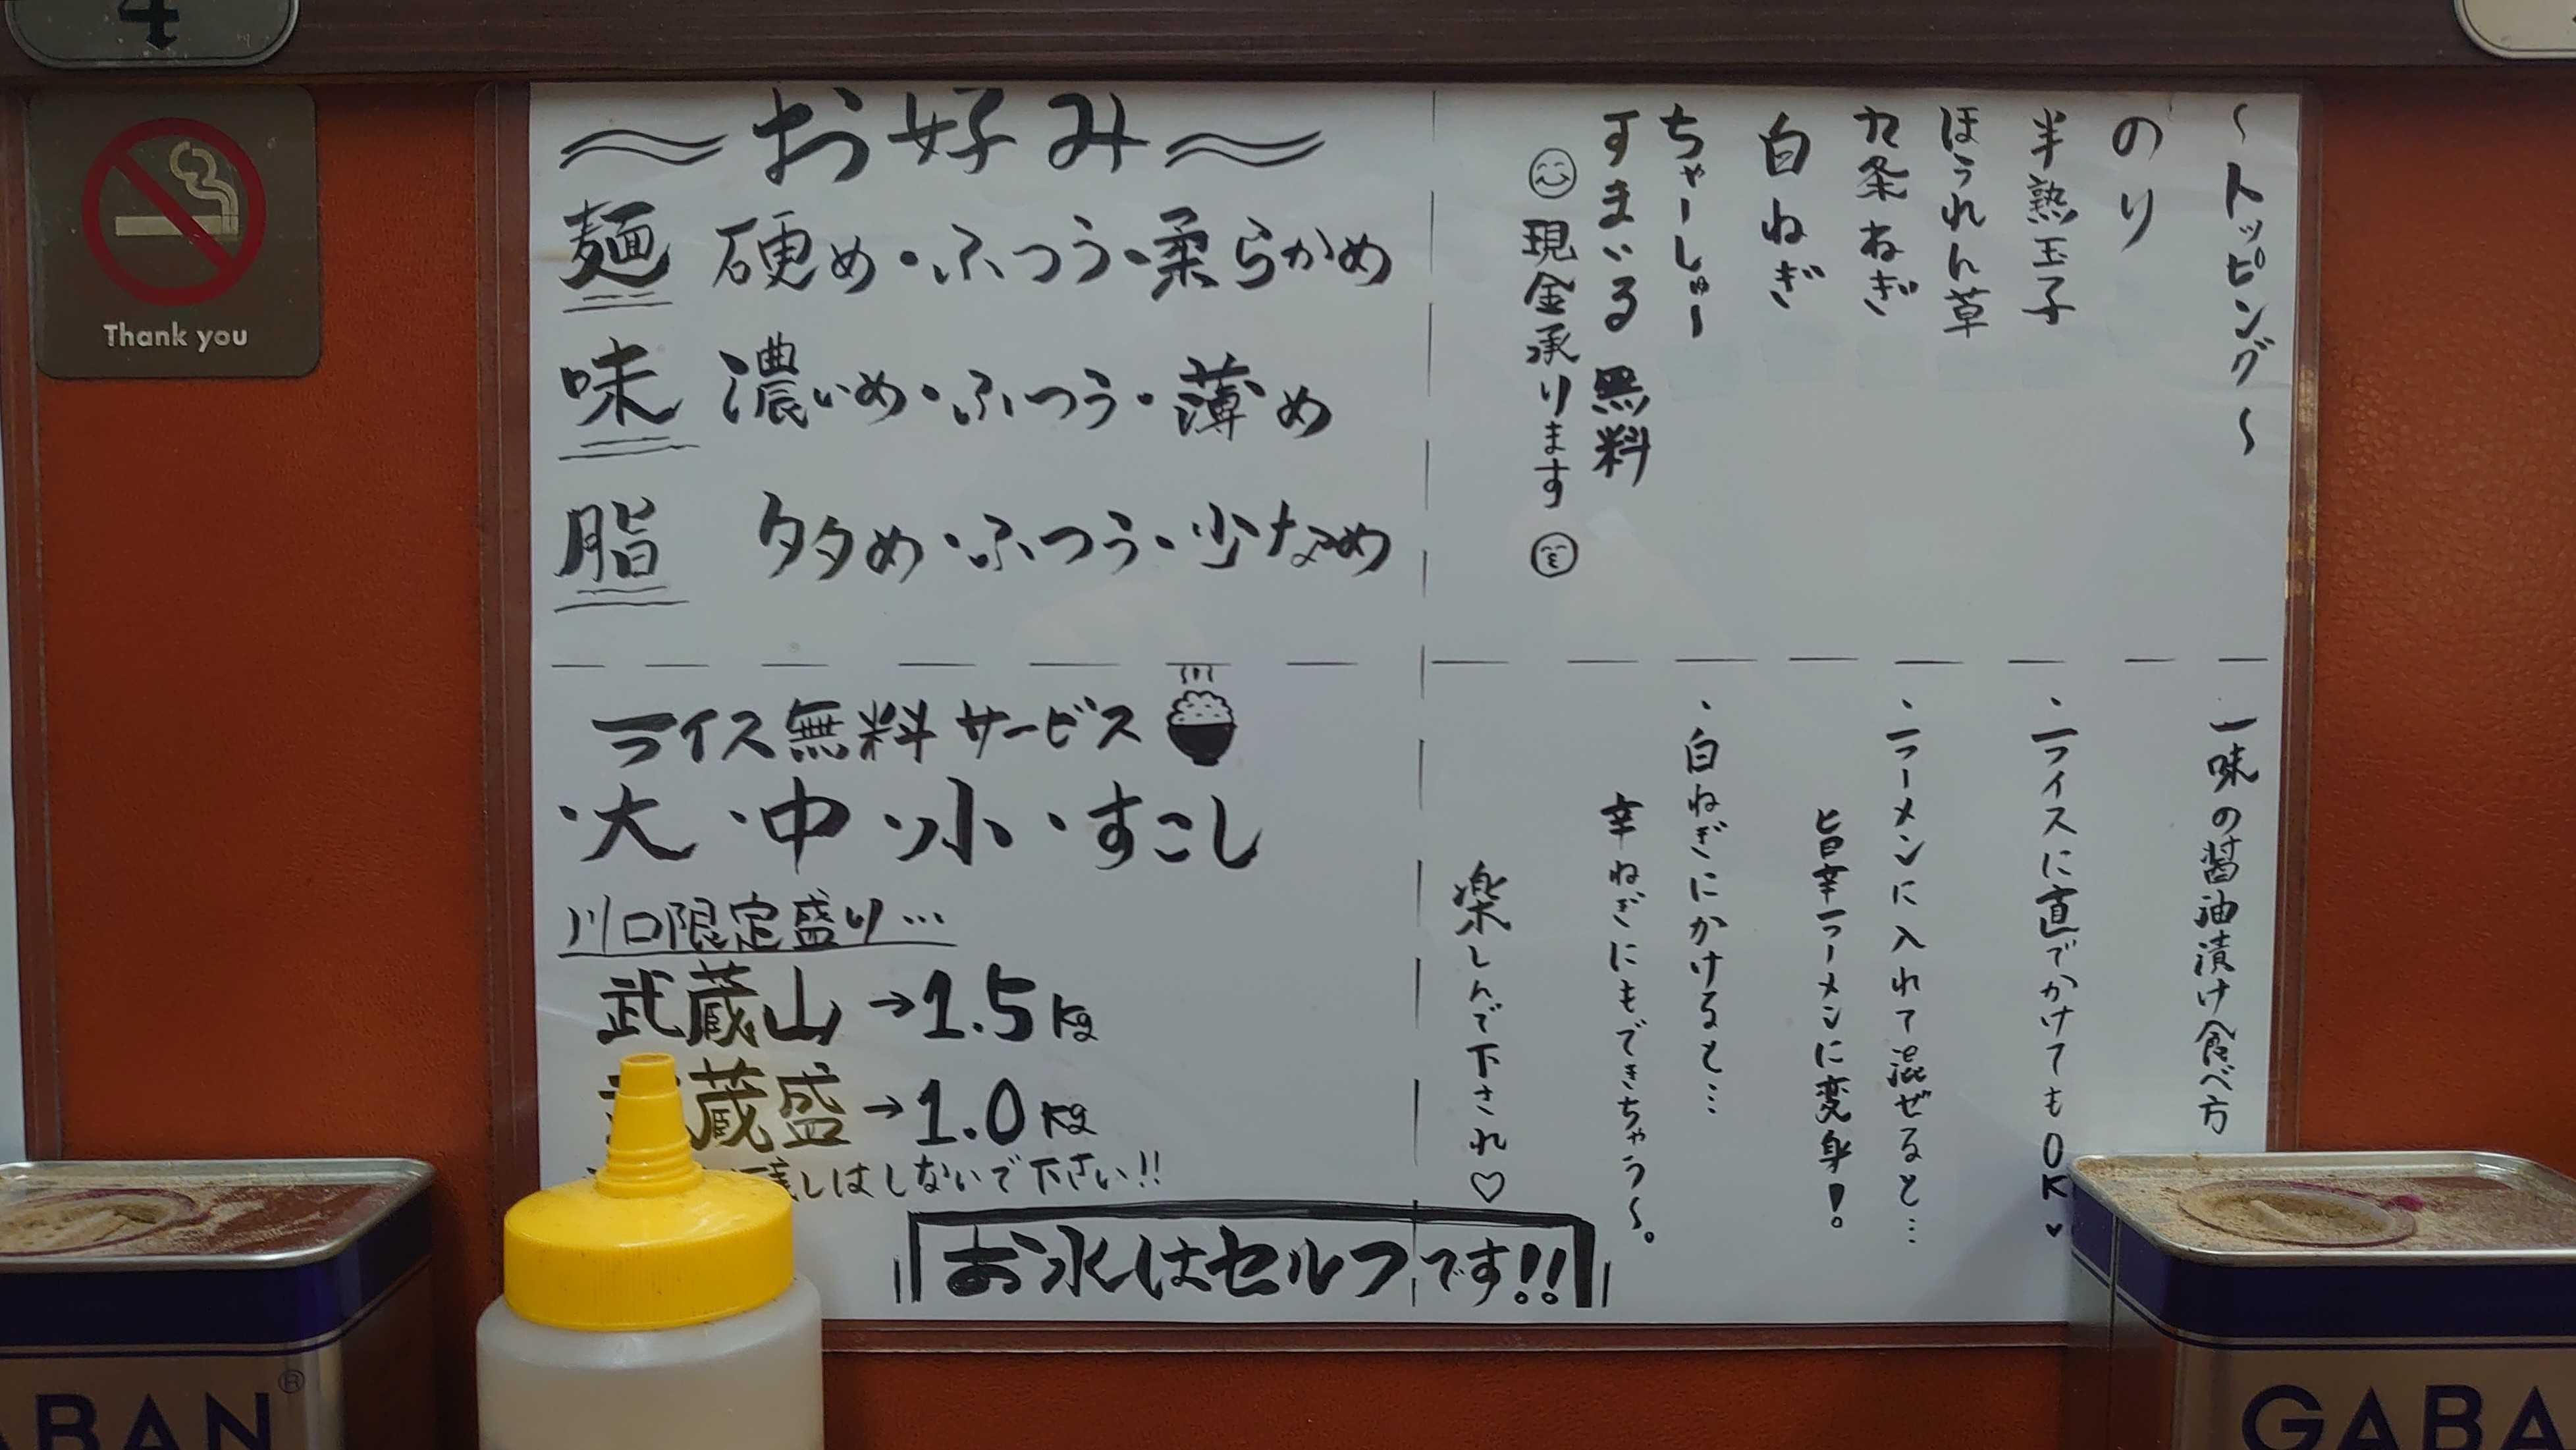 4
Thank you
～お好み～
麺 硬め・ふつう・柔らかめ
味 濃いめ・ふつう・薄め
脂 多め・ふつう・少なめ
～トッピング～
のり
半熟玉子
ほうれん草
九条ねぎ
白ねぎ
ちゃーしゅー
すまいる 無料
現金承ります
ライス無料サービス
・大 ・中 ・小 ・すこし
川口限定盛り…
武蔵山→1.5kg
蔵盛→1.0kg
残しはしないで下さい!!
一味の醤油漬け食べ方
・ライスに直でかけてもOK♥
・ラーメンに入れて混ぜると…
旨辛ラーメンに変身!
・白ねぎにかけると…
辛ねぎにもできちゃう～。
楽しんで下され♡
お水はセルフです!!
ABAN®
GABA